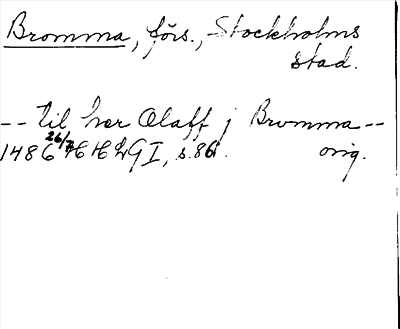 Bromma, förs., Stockholms
stad.
-- til her Olaff j Bromma --
1486 26/7 HLG I, s. 86. orig.